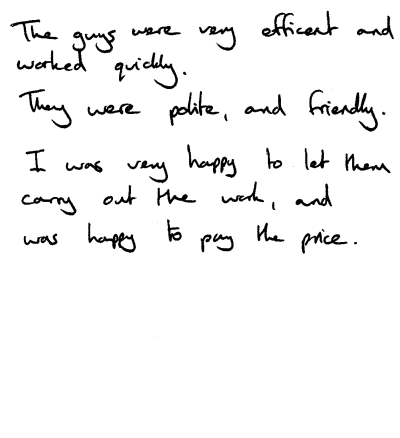 The guys were very efficent and
worked quickly.
They were polite, and friendly.
I was very happy to let them
carry out the work, and
was happy to pay the price.